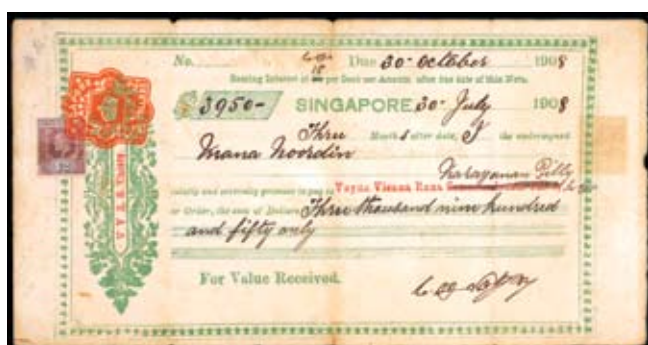 No. Due 30 October 1908
18
Bearing Interest at per Cent per Annum after due date of this Note.
$ 3950- SINGAPORE 30 July 1908
Three Months after date, I the undersigned
Mana Noordin
jointly and severally promise to pay to Veyna Vienna Rana Narayanan
or Order, the sum of Dollars Three thousand nine hundred
and fifty only
For Value Received.